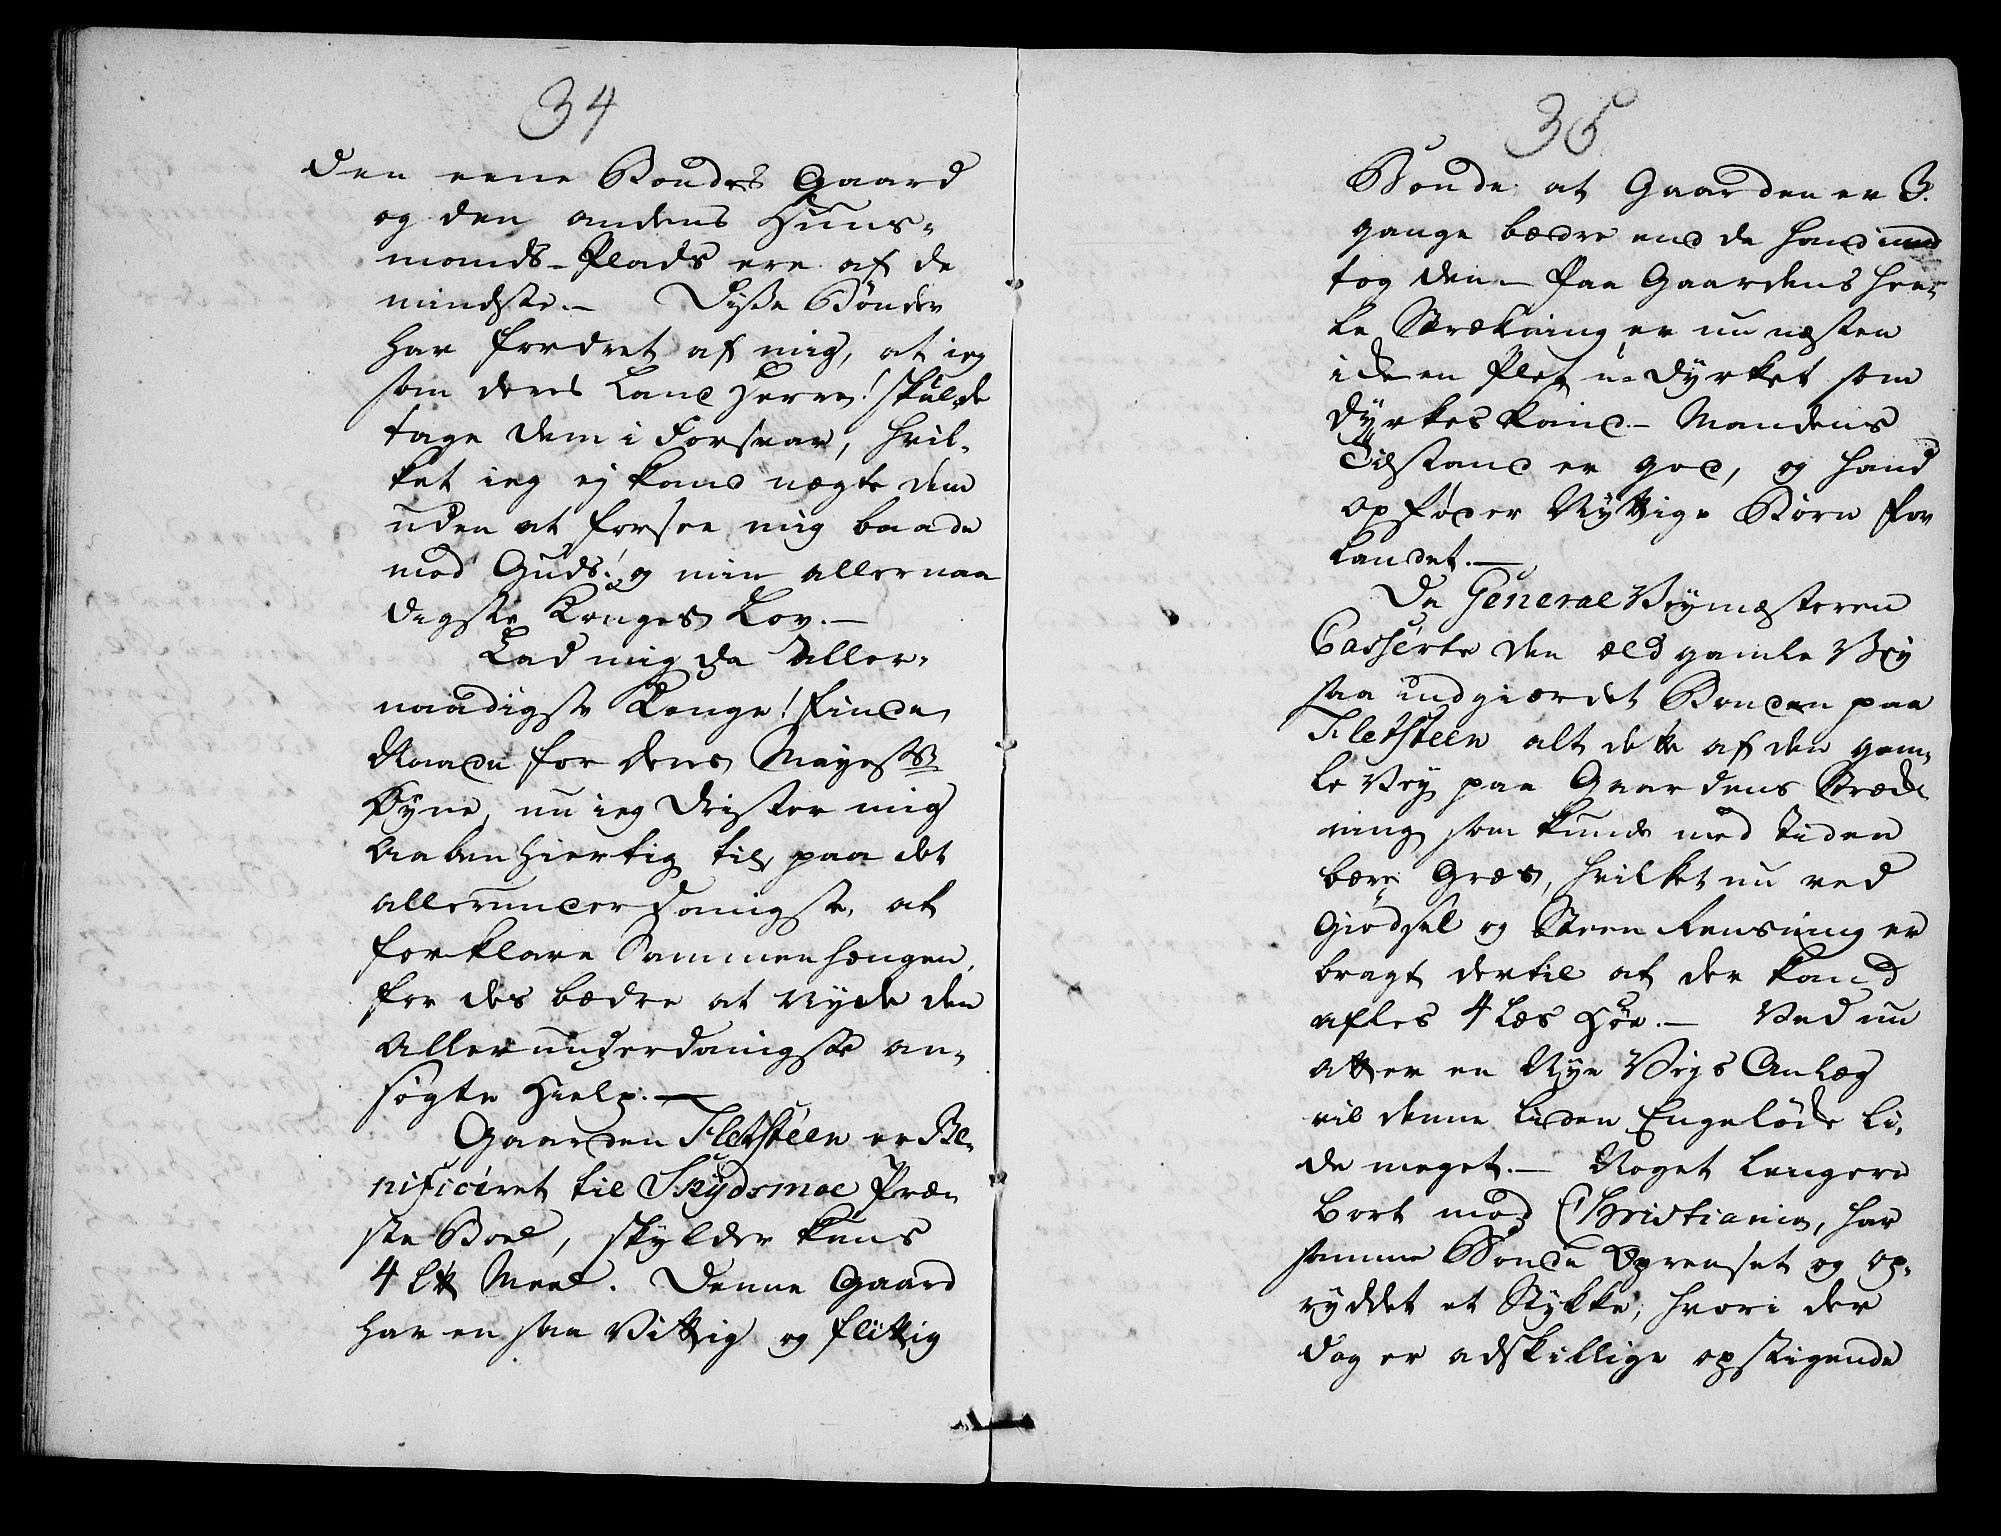 34
den eene Bondes Gaard
og den andens Huus-
mands-Plads ere af de
mindste.— Disse Bønder
har fordret af mig, at ieg
som deres Land Herre! skulde
tage dem i Forsvar, hvil-
ket ieg ej kand nægte dem
uden at forsee mig baade
mod Guds! og min allernaa
digste Konges Lov.—
Lad mig da Aller-
naadigste Konge! finde
Naade for Deres Mayests
Øyne, nu ieg drister mig
Aabenhiertig til, paa det
allerunderdanigste, at
forklare Sammenhængen,
for des bædre at nyde den
Allerunderdanigste an-
søgte Hielp.—
Gaarden Kletsteen er Be-
nificeret til Skydsmoe Præ-
ste Boel, skylder kuns
4 Lt Meel. Denne Gaard
har en saa Vittig og flittig
35
Bonde at Gaarden er 3.
gange bædre end da hand imod
tog den.— Paa Gaardens hee-
le Strækning er nu næsten
ide en Plet u-dyrket som
dyrkes kand.— Mandens
Tilstand er god, og hand
opføder Nyttige Børn for
Landet.—
Da General Veymesteren
Casserte den æld gamle Vey
saa indgiærdet Bonden paa
Kletsteen alt dette af den gam-
le Vey paa Gaardens Stræk
ning som kunde med Tiden
bære Græs, hvilket nu ved
Giødsel og Steen Rensning er
bragt dertil at der kand
afles 4 Læs Høe.— Ved nu
atter en Nye Veys Anlæg
vil denne liden Engeløde li-
de meget.— Noget lengere
bort mod Christiania, har
samme Bonde Oprenset og op-
ryddet et Stykke, hvori der
dog er adskillige opstigende